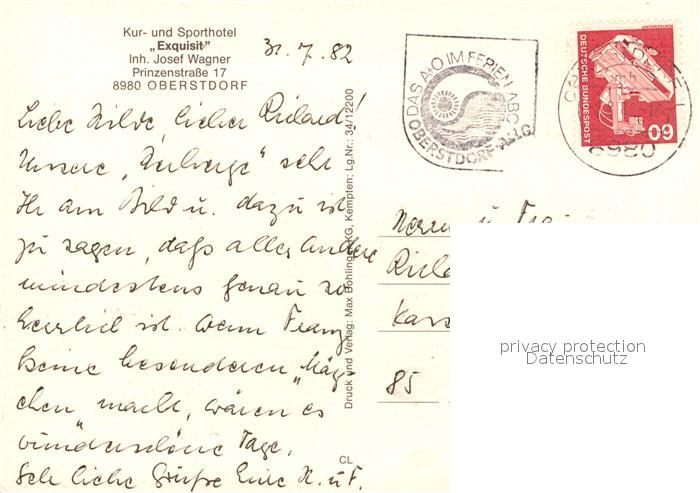 Kur- und Sporthotel
„Exquisit"
Inh. Josef Wagner
Prinzenstraße 17
8980 OBERSTDORF
31.7.82
DAS A·O IM FERIEN ABC
OBERSTDORF-ALLG.
DEUTSCHE BUNDESPOST
60
8980
Liebe Hilde, lieber Richard!
Unsere „Herberge" seht
Ihr am Bild u. dazu ist
zu sagen, daß alles andere
mindestens genau so
herrlich ist. Wenn Franz
keine besonderen „Mätz-
chen" macht, wären es
wunderschöne Tage.
Sehr liebe Grüße Eure H. u. F.
Druck und Verlag: Max Bohlinger KG, Kempten; Lg.Nr.: 34/12200
CL
Herrn u. Frau
85
privacy protection
Datenschutz